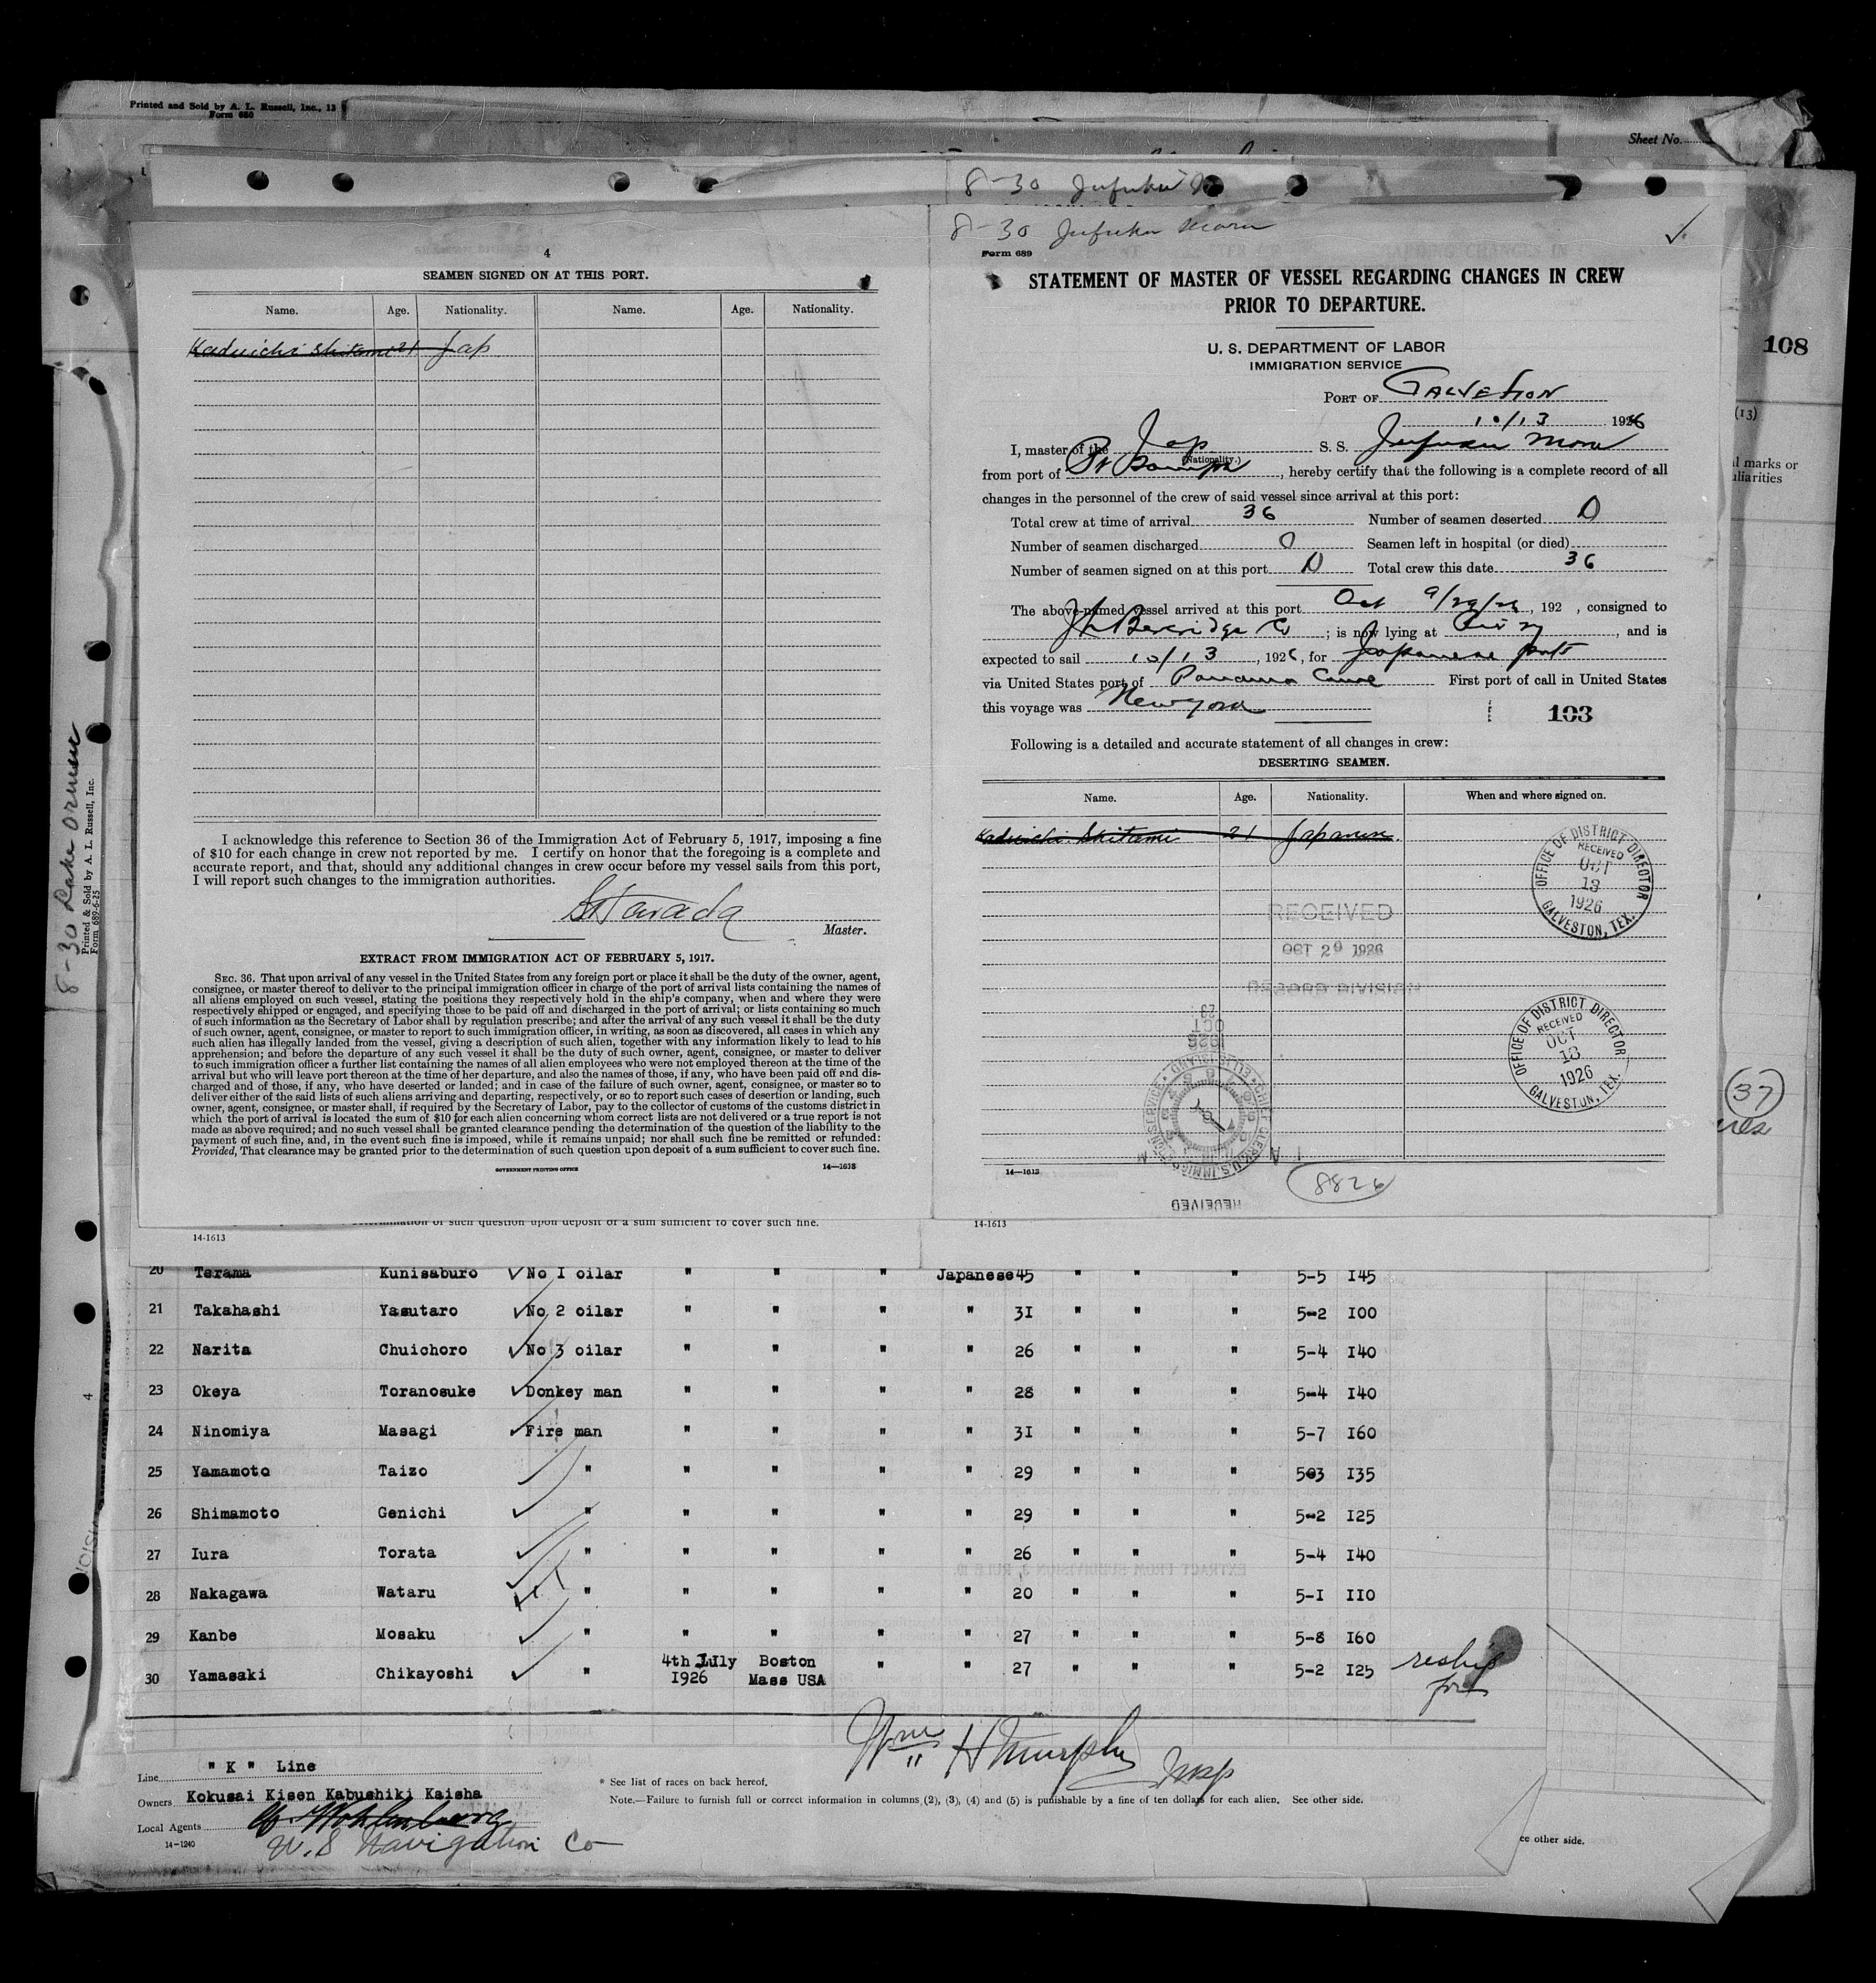 Printed and Sold by A. L. Russell, Inc., 13
Form 680
Sheet No.
8-30 Jufuku M
8-30 Jufuku Maru
108
(13)
l marks or
uliarities
(37)
4
SEAMEN SIGNED ON AT THIS PORT.
Name. Age. Nationality. Name. Age. Nationality.
Kaduichi Shitami 21 Jap
I acknowledge this reference to Section 36 of the Immigration Act of February 5, 1917, imposing a fine
of $10 for each change in crew not reported by me. I certify on honor that the foregoing is a complete and
accurate report, and that, should any additional changes in crew occur before my vessel sails from this port,
I will report such changes to the immigration authorities.
Master.
EXTRACT FROM IMMIGRATION ACT OF FEBRUARY 5, 1917.
SEC. 36. That upon arrival of any vessel in the United States from any foreign port or place it shall be the duty of the owner, agent,
consignee, or master thereof to deliver to the principal immigration officer in charge of the port of arrival lists containing the names of
all aliens employed on such vessel, stating the positions they respectively hold in the ship's company, when and where they were
respectively shipped or engaged, and specifying those to be paid off and discharged in the port of arrival; or lists containing so much
of such information as the Secretary of Labor shall by regulation prescribe; and after the arrival of any such vessel it shall be the duty
of such owner, agent, consignee, or master to report to such immigration officer, in writing, as soon as discovered, all cases in which any
such alien has illegally landed from the vessel, giving a description of such alien, together with any information likely to lead to his
apprehension; and before the departure of any such vessel it shall be the duty of such owner, agent, consignee, or master to deliver
to such immigration officer a further list containing the names of all alien employees who were not employed thereon at the time of the
arrival but who will leave port thereon at the time of her departure, and also the names of those, if any, who have been paid off and dis-
charged and of those, if any, who have deserted or landed; and in case of the failure of such owner, agent, consignee, or master so to
deliver either of the said lists of such aliens arriving and departing, respectively, or so to report such cases of desertion or landing, such
owner, agent, consignee, or master shall, if required by the Secretary of Labor, pay to the collector of customs of the customs district in
which the port of arrival is located the sum of $10 for each alien concerning whom correct lists are not delivered or a true report is not
made as above required; and no such vessel shall be granted clearance pending the determination of the question of the liability to the
payment of such fine, and, in the event such fine is imposed, while it remains unpaid; nor shall such fine be remitted or refunded:
Provided, That clearance may be granted prior to the determination of such question upon deposit of a sum sufficient to cover such fine.
GOVERNMENT PRINTING OFFICE 14—1613
Form 689
STATEMENT OF MASTER OF VESSEL REGARDING CHANGES IN CREW
PRIOR TO DEPARTURE.
U. S. DEPARTMENT OF LABOR
IMMIGRATION SERVICE
PORT OF GALVESTON
10/13 1926
I, master of the Jap S. S. Jufuku Maru
(Nationality.)
from port of , hereby certify that the following is a complete record of all
changes in the personnel of the crew of said vessel since arrival at this port:
Total crew at time of arrival 36 Number of seamen deserted 0
Number of seamen discharged 0 Seamen left in hospital (or died)
Number of seamen signed on at this port 0 Total crew this date 36
The above-named vessel arrived at this port Oct 9/29/26, 192 , consigned to
; is now lying at , and is
expected to sail 10/13, 1926, for Japanese ports
via United States port of Panama Canal First port of call in United States
this voyage was New York
103
Following is a detailed and accurate statement of all changes in crew:
DESERTING SEAMEN.
Name. Age. Nationality. When and where signed on.
Kaduichi Shitami 21 Japanese
OFFICE OF DISTRICT DIRECTOR
RECEIVED
OCT
13
1926
GALVESTON, TEX.
RECEIVED
OCT 29 1926
OFFICE OF DISTRICT DIRECTOR
RECEIVED
OCT
13
1926
GALVESTON, TEX.
RECEIVED
14—1613
8826
8-30 Lake Ormoc
Printed & Sold by A. L. Russell, Inc.
Form 689-6-25
4
determination of such question upon deposit of a sum sufficient to cover such fine.
14-1613 14-1613
20 Terama Kunisaburo No I oilar " " " Japanese 45 " " " 5-5 I45
21 Takahashi Yasutaro No 2 oilar " " " " 3I " " " 5-2 I00
22 Narita Chuichoro No 3 oilar " " " " 26 " " " 5-4 I40
23 Okeya Toranosuke Donkey man " " " " 28 " " " 5-4 I40
24 Ninomiya Masagi Fire man " " " " 3I " " " 5-7 I60
25 Yamamoto Taizo " " " " " 29 " " " 503 I35
26 Shimamoto Genichi " " " " " 29 " " " 5-2 I25
27 Iura Torata " " " " " 26 " " " 5-4 I40
28 Nakagawa Wataru " " " " " 20 " " " 5-I II0
29 Kanbe Mosaku " " " " " 27 " " " 5-8 I60
30 Yamasaki Chikayoshi " 4th July I926 Boston Mass USA " " 27 " " " 5-2 I25
Wm H Murphy Insp
Line " K " Line
Owners Kokusai Kisen Kabushiki Kaisha
Local Agents
U.S Navigation Co
14-1240
* See list of races on back hereof.
Note.—Failure to furnish full or correct information in columns (2), (3), (4) and (5) is punishable by a fine of ten dollars for each alien. See other side.
ee other side.